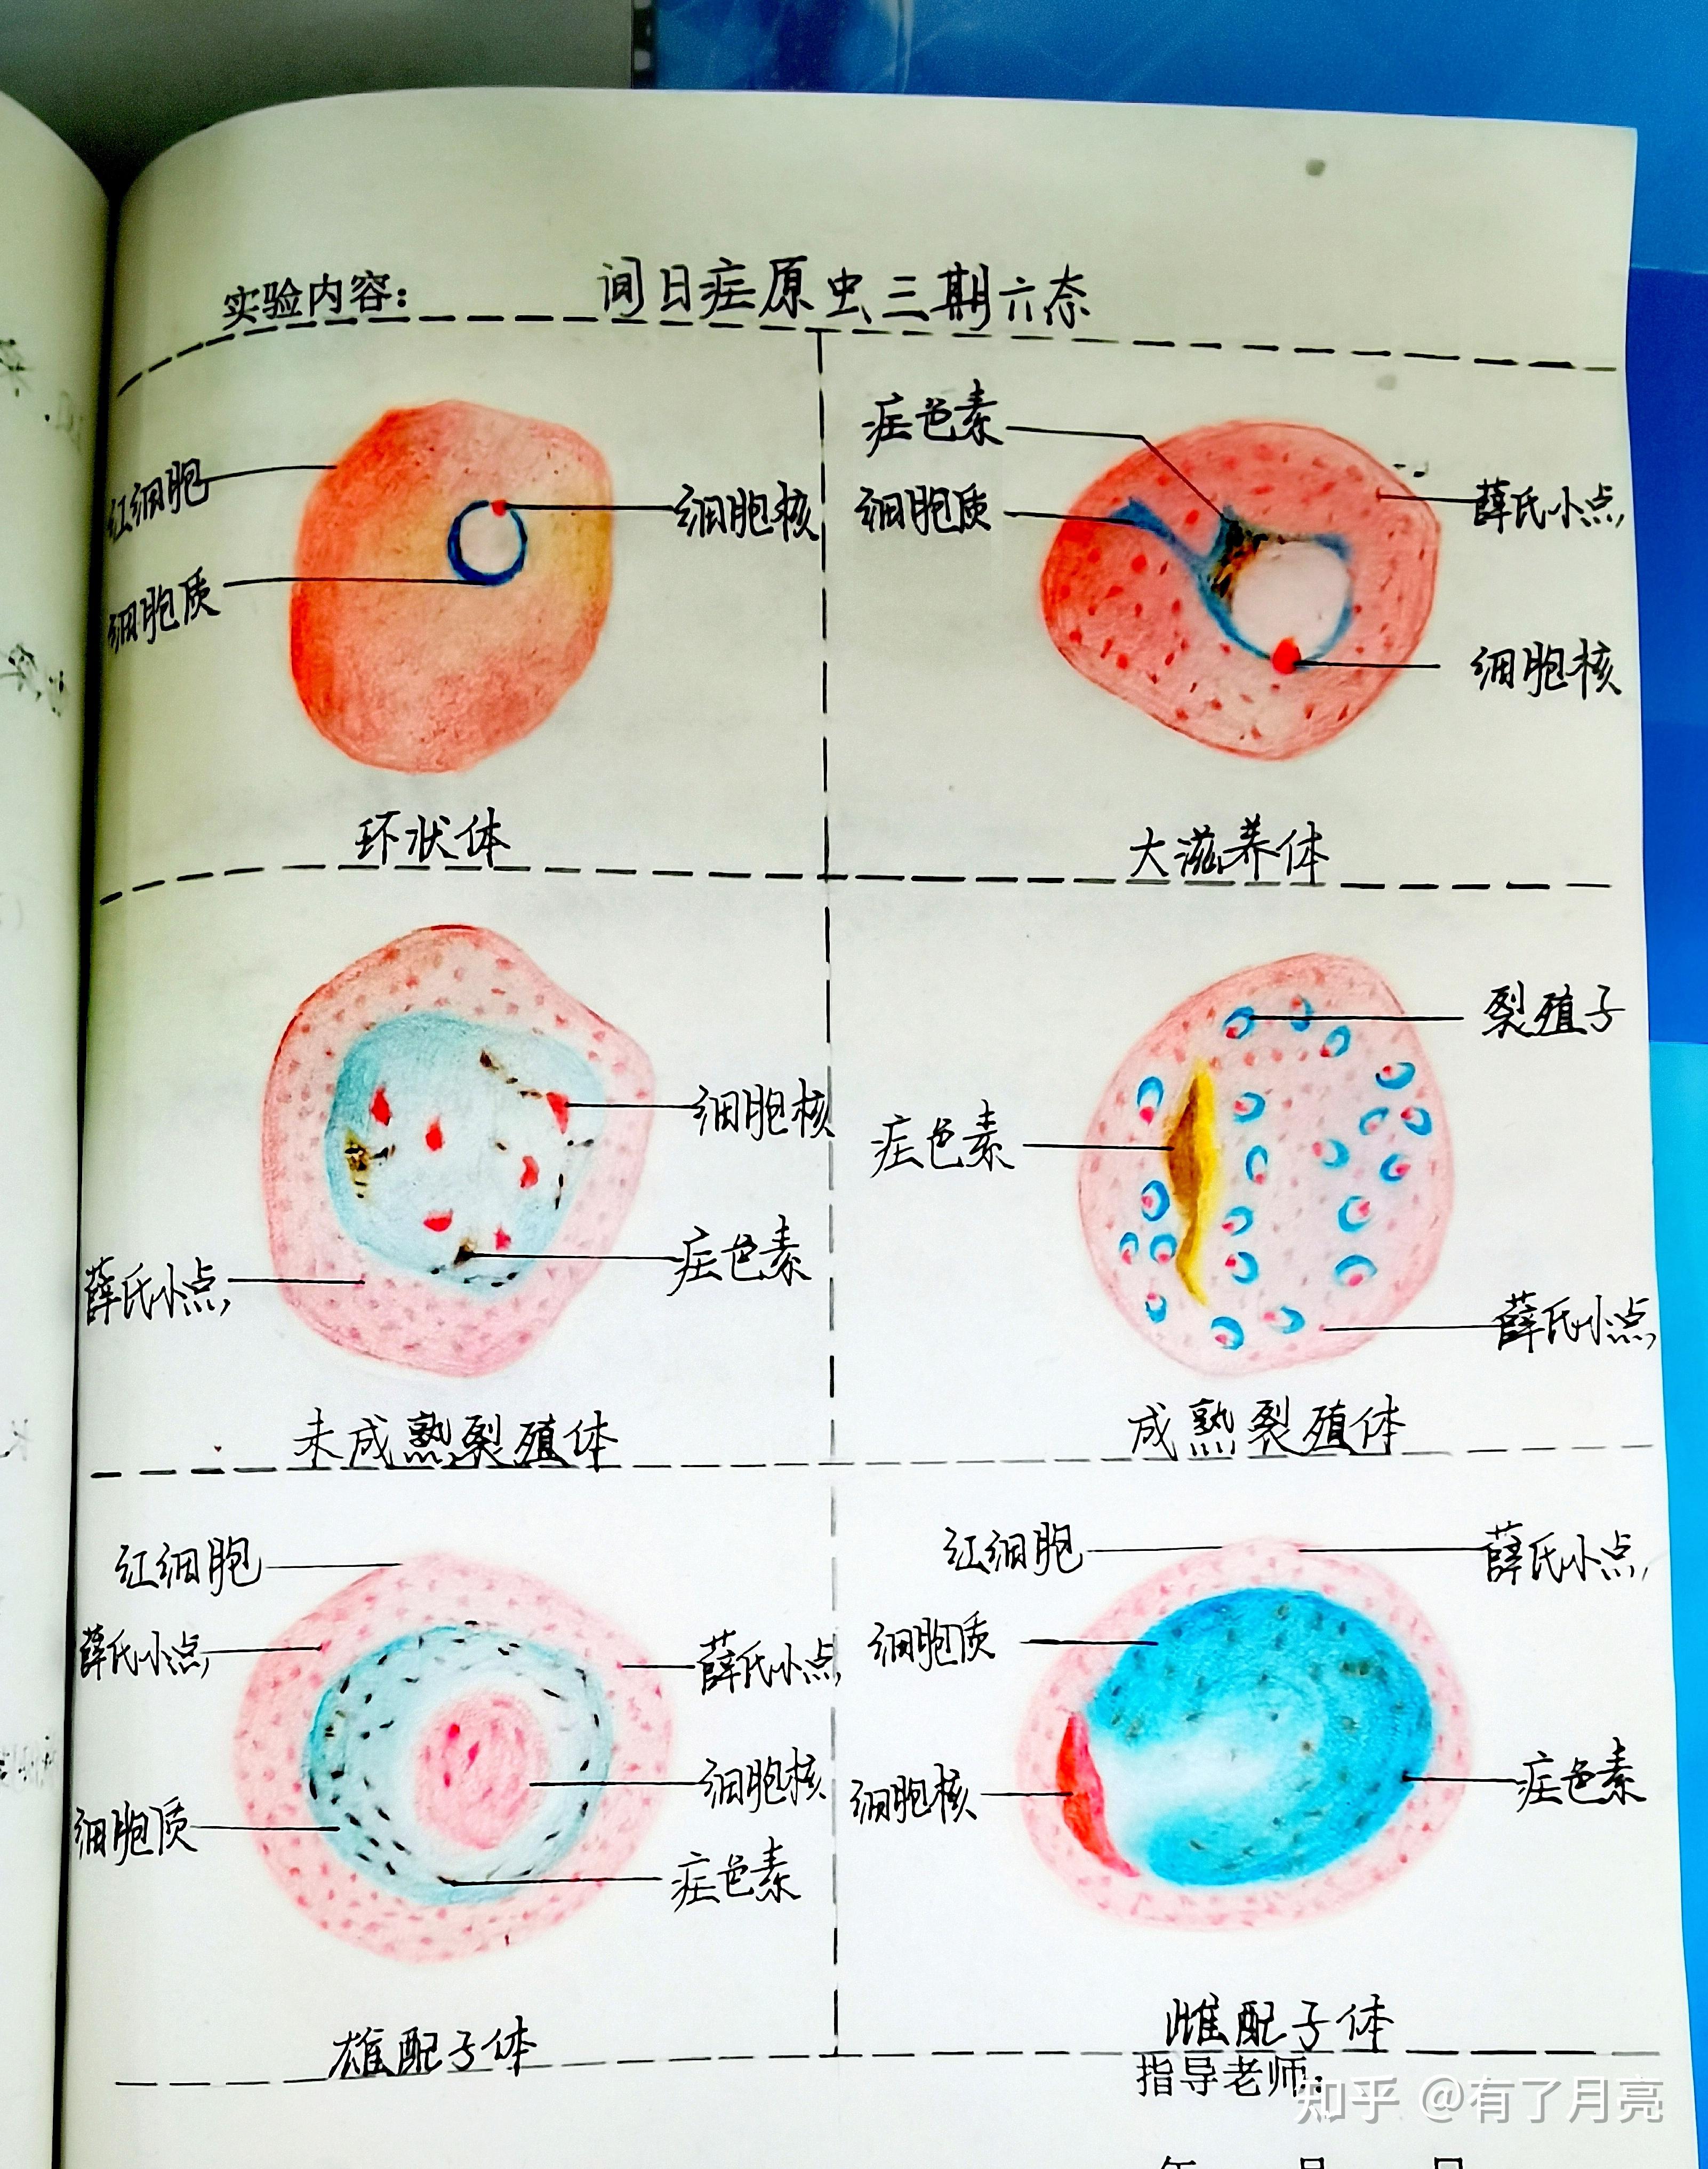 实验内容: 间日疟原虫三期六态
红细胞
细胞核
细胞质
环状体
疟色素
细胞质
薛氏小点
细胞核
大滋养体
细胞核
疟色素
薛氏小点
未成熟裂殖体
裂殖子
疟色素
薛氏小点
成熟裂殖体
红细胞
薛氏小点
薛氏小点
细胞核
细胞质
疟色素
雄配子体
红细胞
薛氏小点
细胞质
细胞核
疟色素
雌配子体
指导老师:
知乎 @有了月亮
年 月 日